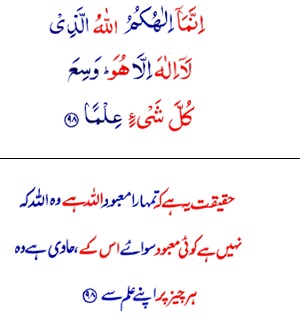 اِنَّمَاۤ اِلٰهُكُمُ اللّٰهُ الَّذِیْ
لَاۤ اِلٰهَ اِلَّا هُوَ ؕ وَسِعَ
كُلَّ شَیْءٍ عِلْمًا ﴿۹۸﴾
حقیقت یہ ہے کہ تمہارا معبود اللہ ہے وہ اللہ کہ
نہیں ہے کوئی معبود سوائے اس کے، حاوی ہے وہ
ہر چیز پر اپنے علم سے ﴿۹۸﴾